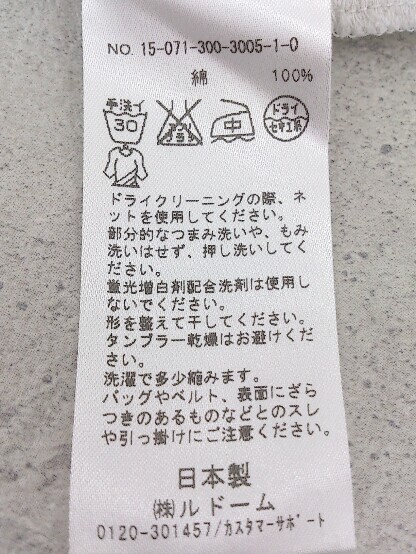 NO. 15-071-300-3005-1-0
綿 100%
手洗イ
30
エンソサラシ
中
ドライ
セキユ系
ドライクリーニングの際、ネ
ットを使用してください。
部分的なつまみ洗いや、もみ
洗いはせず、押し洗いしてく
ださい。
蛍光増白剤配合洗剤は使用し
ないでください。
形を整えて干してください。
タンブラー乾燥はお避けくだ
さい。
洗濯で多少縮みます。
バッグやベルト、表面にざら
つきのあるものなどとのスレ
や引っ掛けにご注意ください。
日本製
㈱ルドーム
0120-301457/カスタマーサポート